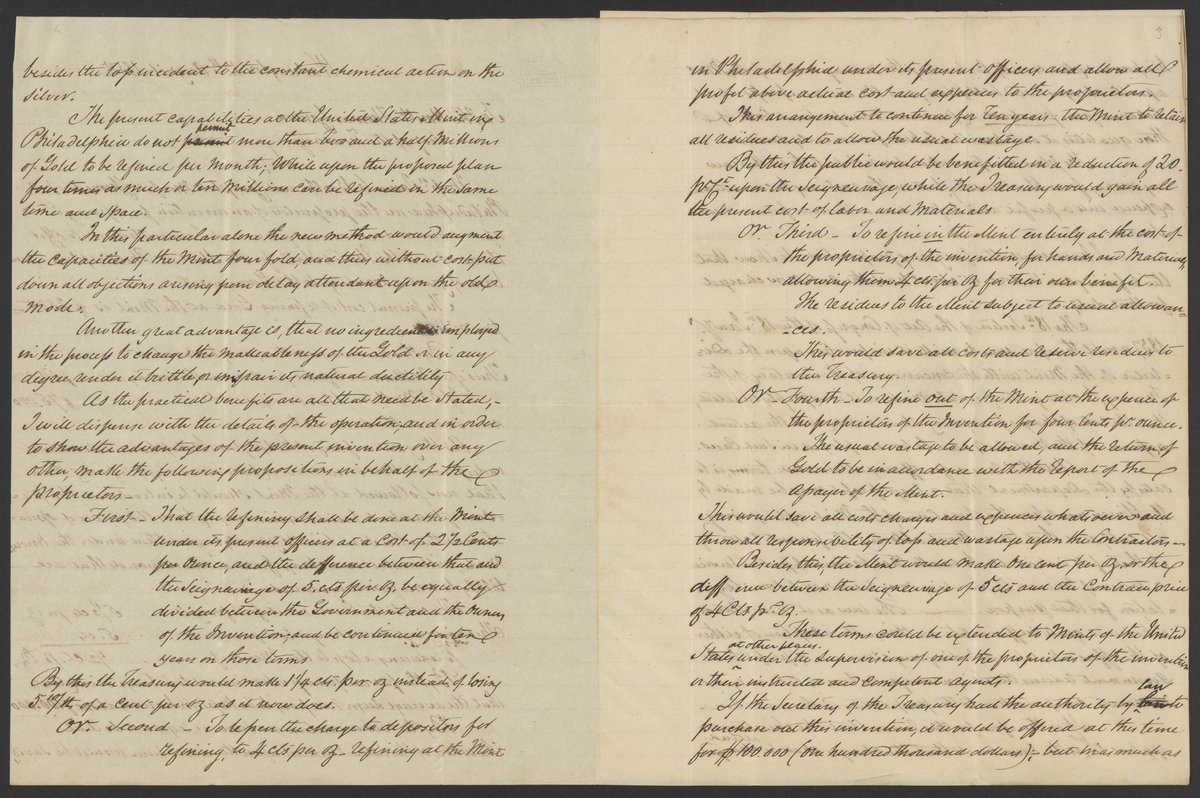 besides the loss incident to the constant chemical action on the
silver.
The present capabilities at the United States Mint in
permit
Philadelphia do not more than two and a half Millions
of Gold to be refined per month; While upon the proposed plan
four times as much or ten Millions can be refined in the same
time and space.
In this particular alone the new method would augment
the capacities of the Mint four fold, and thus without cost put
down all objections arising from delay attendant upon the old
mode.
Another great advantage is, that no ingredient is employed
in the process to change the malleableness of the Gold or in any
degree render it brittle or impair its natural ductility
As the practical benefits are all that need be stated,-
I will dispense with the details of the operation and in order
to show the advantages of the present invention over any
other, make the following propositions in behalf of the
proprietors-
First - That the refining shall be done at the Mint
under its present officers at a cost of 2 1/2 Cents
per ounce, and the difference between that and
the Seigneurage of 5. cts per oz be equally
divided between the Government and the Owners
of the Invention, and be continued for ten
years on those terms
By this the Treasury would make 1 1/4 cts per oz instead of losing
5 10/th of a cent per oz. as it now does.
Or. Second - To lessen the charge to depositors for
refining, to 4 cts per oz - refining at the Mint
3
in Philadelphia under its present officers and allow all
profit above actual cost and expences to the proprietors.
This arrangement to continue for Ten years: the Mint to retain
all residues and to allow the usual wastage
By this the public would be benefitted in a reduction of 20.
pr Ct. upon the Seigneurage, while the Treasury would gain all
the present cost of labor and materials
Or. Third - To refine in the Mint entirely at the cost of
the proprietors of the invention, for hands and Materials,
allowing them 4 cts per oz for their own benefit
The residues to the Mint subject to usual allowan-
-ces.
This would save all costs and reserve residues to
the Treasury.
Or Fourth - To refine out of the Mint at the expence of
the proprietors of the Invention for four Cents pr. ounce.
The usual wastage to be allowed, and the return of
Gold to be in accordance with the report of the
Assayer of the Mint.
This would save all costs charges and expences whatsoever and
throw all responsibility of loss and wastage upon the Contractors-
Besides this, the Mint would make one cent per oz. or the
difference between the Seigneurage of 5 cts and the Contract price
of 4 Cts pr. oz.
These terms could be extended to Mints of the United
at other places.
States under the supervision of one of the proprietors of the invention
or their instructed and competent agents.
law
If the Secretary of the Treasury had the authority by to
purchase out this invention, it would be offered at this time
for $100.000 (one hundred thousand dollars);- but inasmuch as